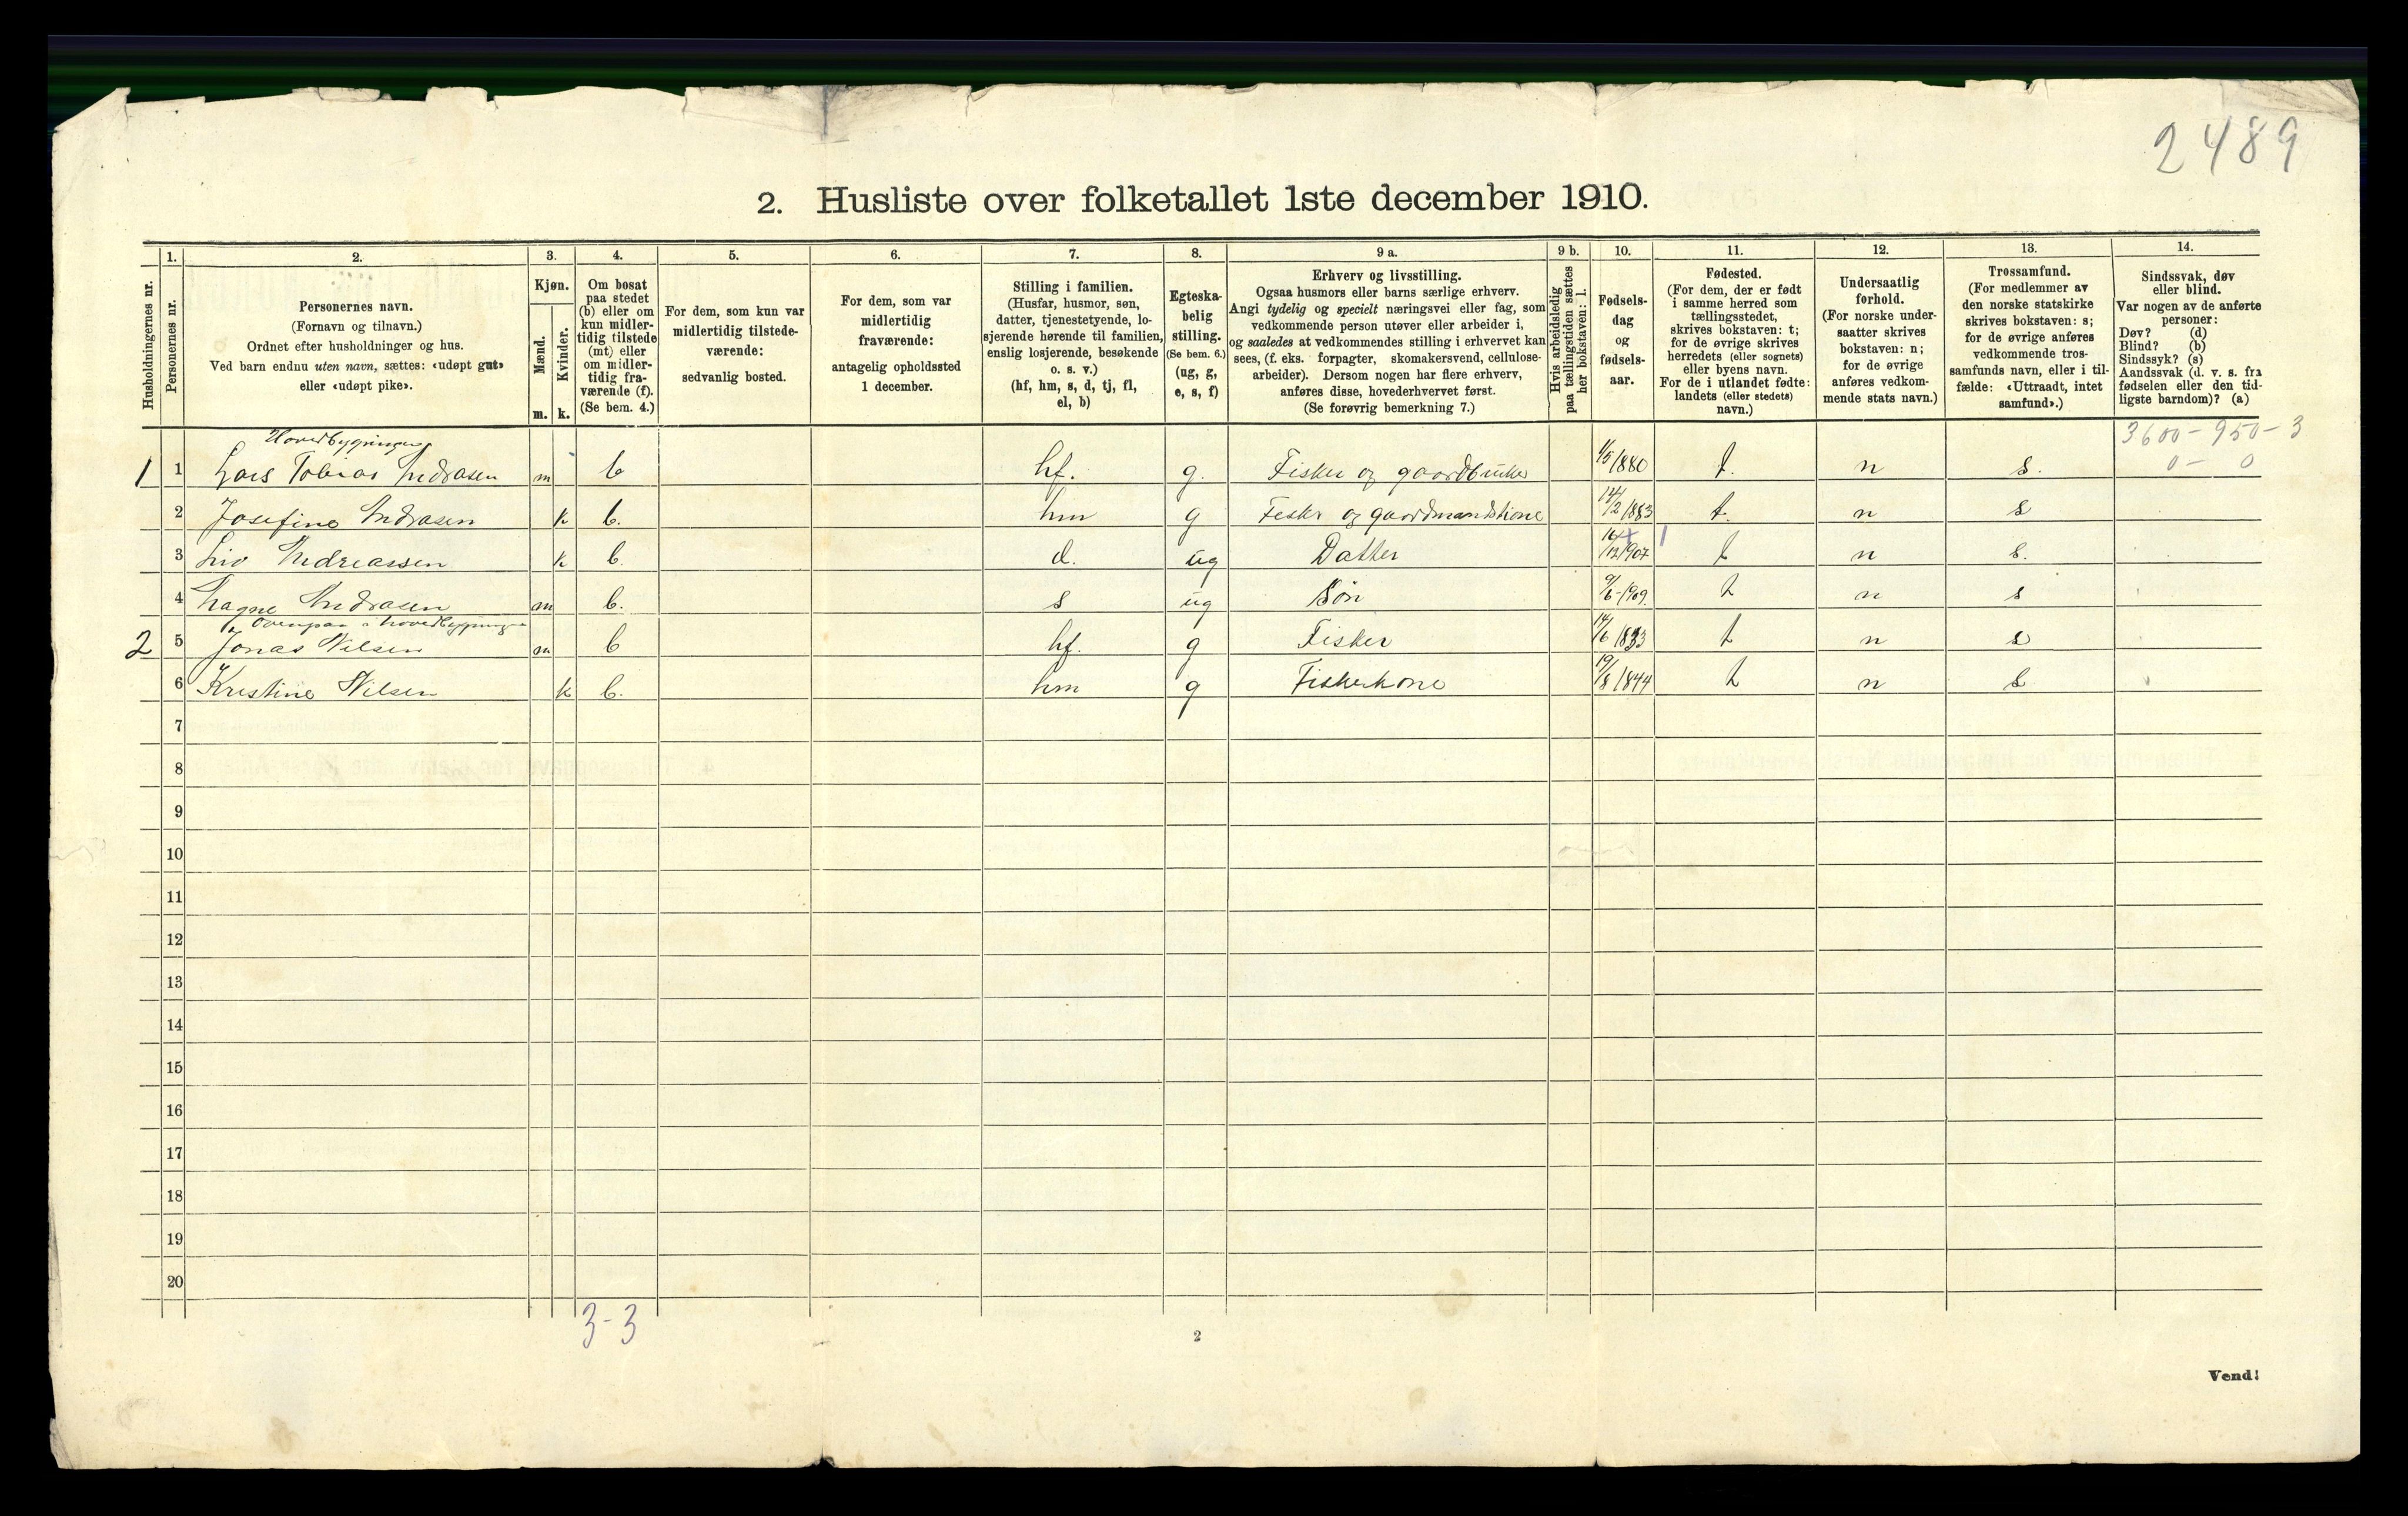 2489
2. Husliste over folketallet 1ste december 1910.
Husholdningernes nr.
1.
Personernes nr.
2.
Personernes navn.
(Fornavn og tilnavn.)
Ordnet efter husholdninger og hus.
Ved barn endnu uten navn, sættes: «udøpt gut»
eller «udøpt pike».
3.
Kjøn.
Mænd.
m.
Kvinder.
k.
4.
Om bosat
paa stedet
(b) eller om
kun midler-
tidig tilstede
(mt) eller
om midler-
tidig fra-
værende (f).
(Se bem. 4.)
5.
For dem, som kun var
midlertidig tilstede-
værende:
sedvanlig bosted.
6.
For dem, som var
midlertidig
fraværende:
antagelig opholdssted
1 december.
7.
Stilling i familien.
(Husfar, husmor, søn,
datter, tjenestetyende, lo-
sjerende hørende til familien,
enslig losjerende, besøkende
o. s. v.)
(hf, hm, s, d, tj, fl,
el, b)
8.
Egteska-
belig
stilling.
(Se bem. 6.)
(ug, g,
e, s, f)
9 a.
Erhverv og livsstilling.
Ogsaa husmors eller barns særlige erhverv.
Angi tydelig og specielt næringsvei eller fag, som
vedkommende person utøver eller arbeider i,
og saaledes at vedkommendes stilling i erhvervet kan
sees, (f. eks. forpagter, skomakersvend, cellulose-
arbeider). Dersom nogen har flere erhverv,
anføres disse, hovederhvervet først.
(Se forøvrig bemerkning 7.)
9 b.
Hvis arbeidsledig
paa tællingstiden sættes
her bokstaven: l.
10.
Fødsels-
dag
og
fødsels-
aar.
11.
Fødested.
(For dem, der er født
i samme herred som
tællingsstedet,
skrives bokstaven: t;
for de øvrige skrives
herredets (eller sognets)
eller byens navn.
For de i utlandet fødte:
landets (eller stedets)
navn.)
12.
Undersaatlig
forhold.
(For norske under-
saatter skrives
bokstaven: n;
for de øvrige
anføres vedkom-
mende stats navn.)
13.
Trossamfund.
(For medlemmer av
den norske statskirke
skrives bokstaven: s;
for de øvrige anføres
vedkommende tros-
samfunds navn, eller i til-
fælde: «Uttraadt, intet
samfund».)
14.
Sindssvak, døv
eller blind.
Var nogen av de anførte
personer:
Døv? (d)
Blind? (b)
Sindssyk? (s)
Aandssvak (d. v. s. fra
fødselen eller den tid-
ligste barndom)? (a)
3600 - 950 - 3
0 - 0
Hovedbygningen
1 1 Lars Tobias Andrasen m b hf. g. Fisker og gaardbruker 1/5 1880 t. n s.
2 Josefine Andrasen k b. hm g Fesker og gaardmandskone 14/2 1883 t. n s
3 Liv Andreassen k b. d. ug Datter 16/12 1907 t n s.
4 Andrasen m b. s ug Søn 9/6-1909. t n s
Ovenpaa i hovedbygningen
2 5 Jonas Nilsen m b hf. g Fisker 14/6 1833 t n s
6 Kristine Nilsen k b. hm g Fiskerkone 19/8 1844 t n s
7
8
9
10
11
12
13
14
15
16
17
18
19
20
3-3
2
Vend!